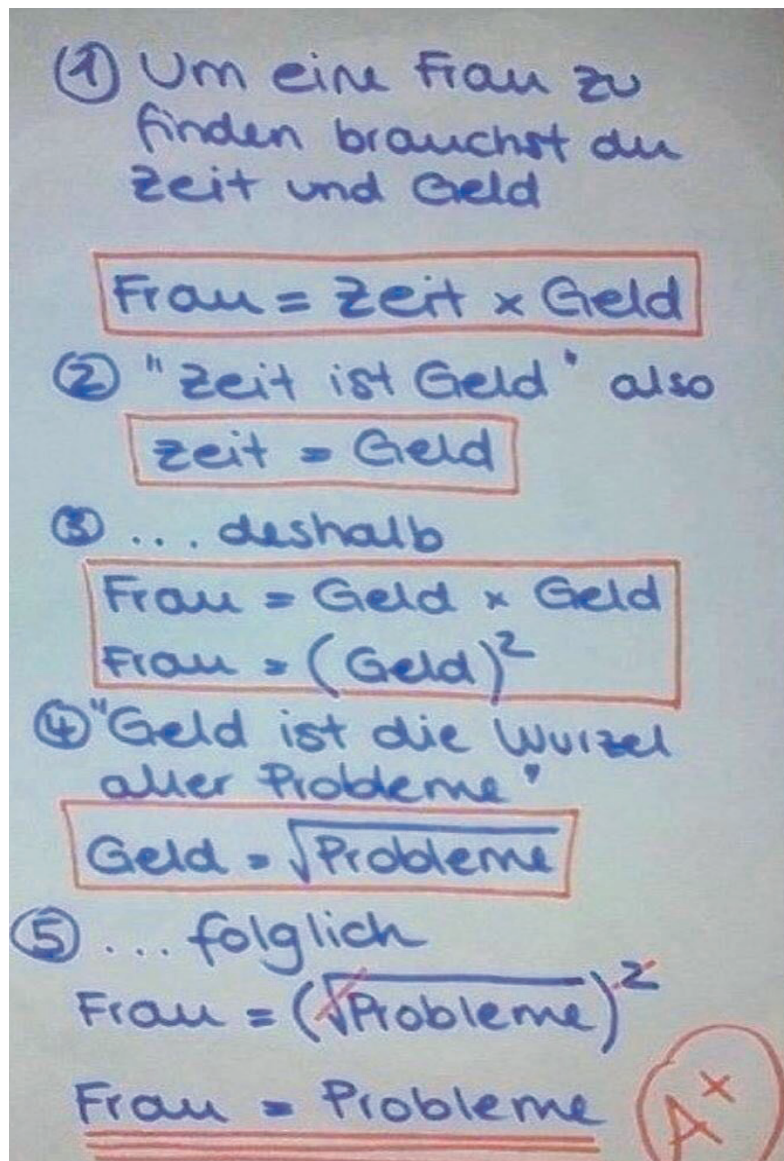 ① Um eine Frau zu
finden brauchst du
Zeit und Geld
Frau = Zeit × Geld
② "Zeit ist Geld" also
Zeit = Geld
③ ... deshalb
Frau = Geld × Geld
Frau = (Geld)²
④ "Geld ist die Wurzel
aller Probleme"
Geld = √Probleme
⑤ ... folglich
Frau = (√Probleme)²
Frau = Probleme
A+